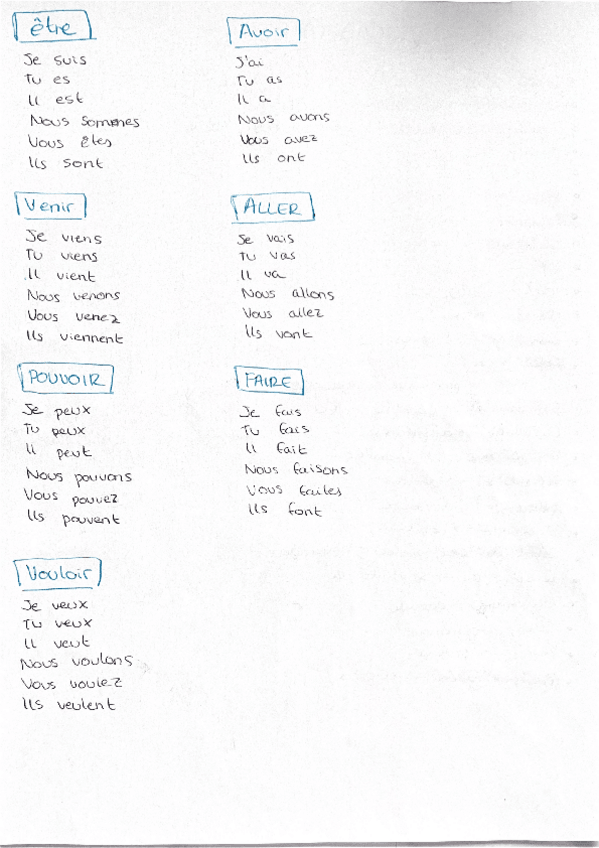 être
Je suis
Tu es
Il est
Nous sommes
Vous êtes
Ils sont
Avoir
J'ai
Tu as
Il a
Nous avons
Vous avez
Ils ont
Venir
Je viens
Tu viens
Il vient
Nous venons
Vous venez
Ils viennent
ALLER
Je vais
Tu vas
Il va
Nous allons
Vous allez
Ils vont
POUVOIR
Je peux
Tu peux
Il peut
Nous pouvons
Vous pouvez
Ils pouvent
FAIRE
Je fais
Tu fais
Il fait
Nous faisons
Vous faites
Ils font
Vouloir
Je veux
Tu veux
Il veut
Nous voulons
Vous voulez
Ils veulent